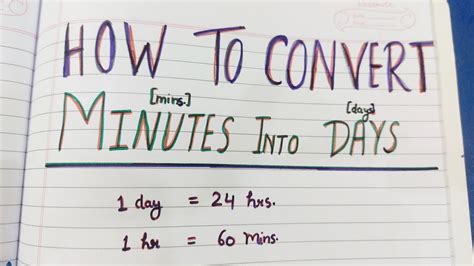 HOW TO CONVERT
[mins.] [days]
MINUTES INTO DAYS
1 day = 24 hrs.
1 hr = 60 Mins.